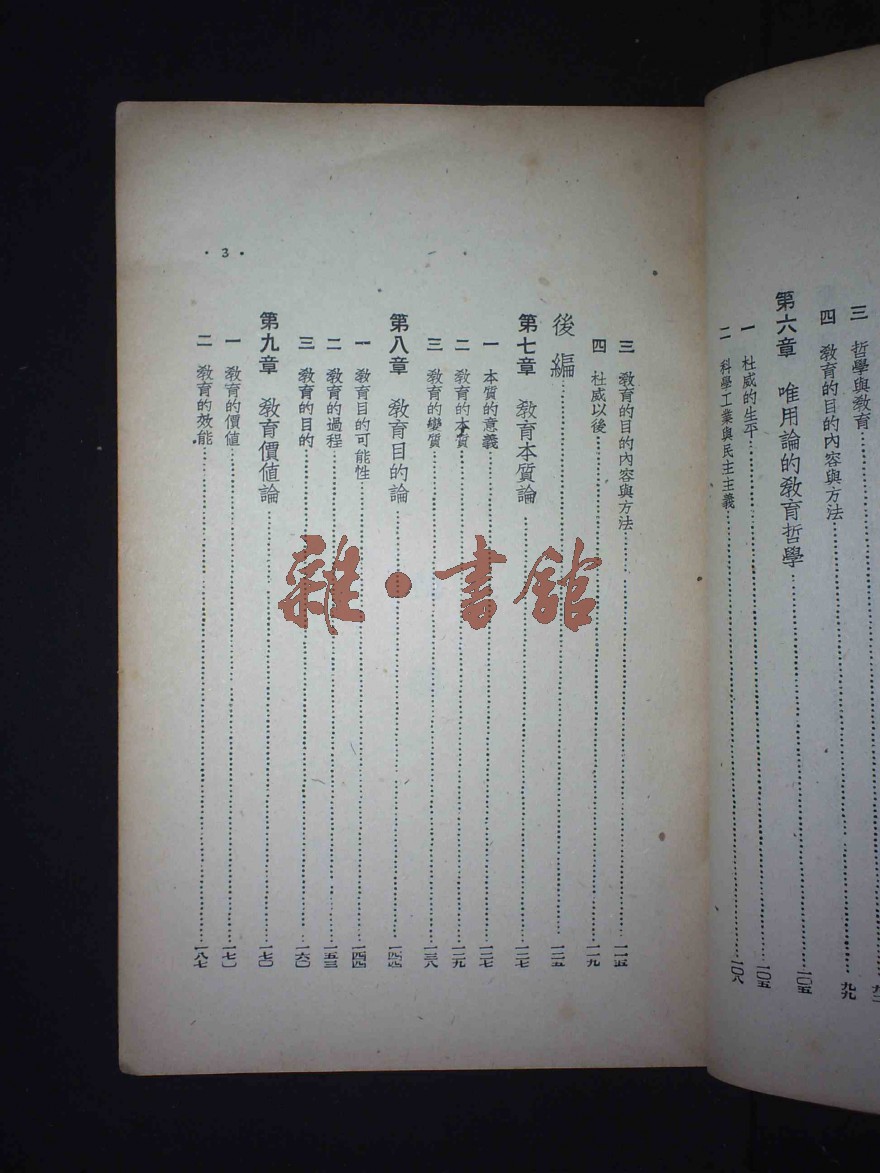 三 哲學與教育
四 教育的目的內容與方法……九九
第六章 唯用論的教育哲學……一〇五
一 杜威的生平……一〇五
二 科學工業與民主主義……一〇八
三 教育的目的內容與方法……一一五
四 杜威以後……一一九
後編……一二五
第七章 教育本質論……一二七
一 本質的意義……一二七
二 教育的本質……一二九
三 教育的變質……一三八
第八章 教育目的論……一四四
一 教育目的可能性……一四四
二 教育的過程……一五三
三 教育的目的……一六〇
第九章 教育價值論……一七〇
一 教育的價值……一七〇
二 教育的效能……一八七
· 3 ·
雜·書館